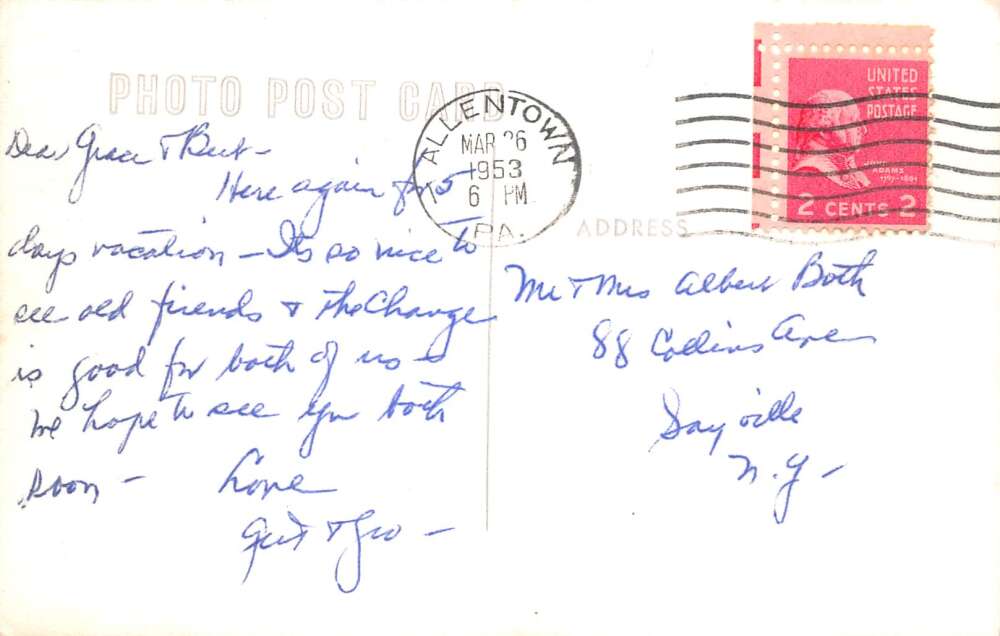 PHOTO POST CARD
Dear Grace & Bert -
Here again for 5
days vacation - Its so nice to
see old friends & the Change
is good for both of us -
We hope to see you both
soon - Love
Gert & Geo -
ALLENTOWN
MAR 26
1953
6 PM
PA.
UNITED
STATES
POSTAGE
JOHN
ADAMS
1797-1801
2 CENTS 2
ADDRESS
Mr & Mrs Albert Both
88 Collins Ave
Sayville
N.Y -